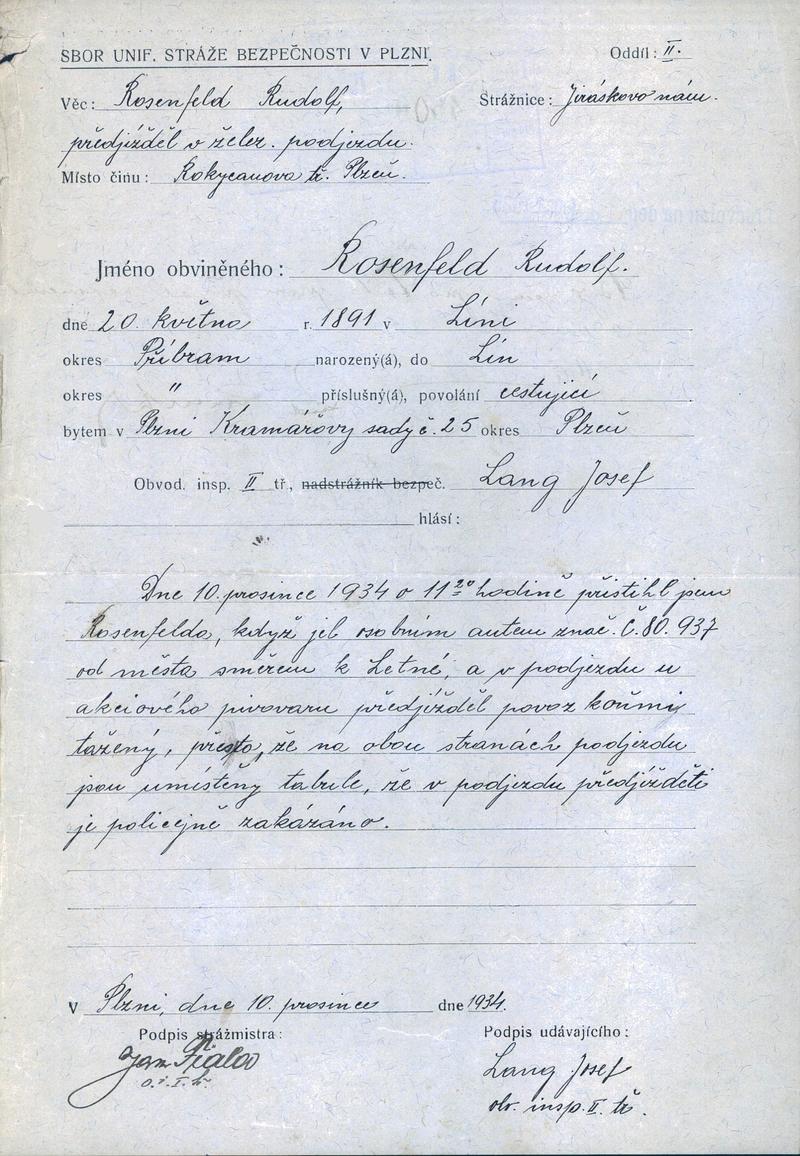 SBOR UNIF. STRÁŽE BEZPEČNOSTI V PLZNI. Oddíl: II.
Věc: Rosenfeld Rudolf, Strážnice: Jiráskovo nám.
předjížděl v želez. podjezdu.
Místo činu: Rokycanova tř. Plzeň.
Jméno obviněného: Rosenfeld Rudolf.
dne 20. května r. 1891 v Líni
okres Příbram narozený(á), do Lín
okres " příslušný(á), povolání cestující
bytem v Plzni Kramářovy sady č. 25 okres Plzeň
Obvod. insp. II tř., nadstrážník bezpeč. Lang Josef
hlásí:
Dne 10. prosince 1934 o 11 20 hodině přistihl jsem
Rosenfelda, když jel osobním autem znač. Č. 80.937
od města směrem k Letné, a v podjezdu u
akciového pivovaru předjížděl povoz koňmi
tažený, přesto, že na obou stranách podjezdu
jsou umístěny tabule, že v podjezdu předjížděti
je policejně zakázáno.
V Plzni, dne 10. prosince dne 1934.
Podpis strážmistra: Podpis udávajícího:
Jan Fiala Lang Josef
o. i. I. tř. obv. insp. II. tř.